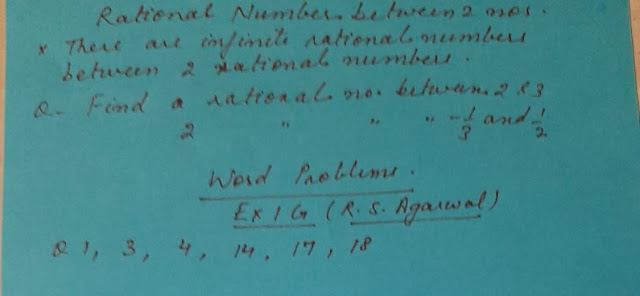 Rational Number between 2 nos.
* There are infinite rational numbers
between 2 rational numbers.
Q- Find a rational no. between 2 & 3
2 " " " -1/3 and 1/2
Word Problems.
EX 1 G (R. S. Agarwal)
Q 1, 3, 4, 14, 17, 18